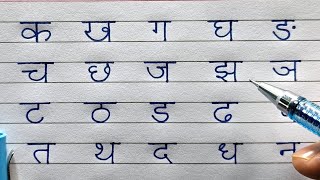 क ख ग घ ङ
च छ ज झ ञ
ट ठ ड ढ
त थ द ध न